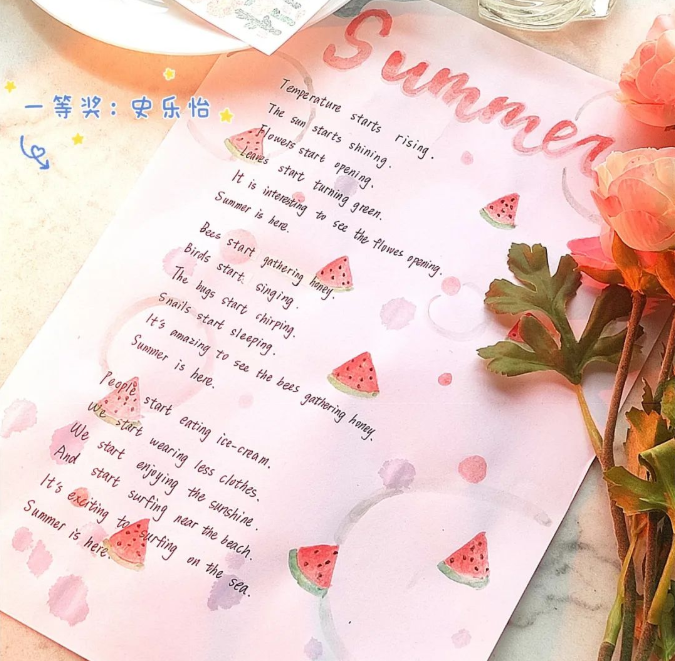 Summer
一等奖：史乐怡
Temperature starts rising.
The sun starts shining.
Flowers start opening.
Leaves start turning green.
It is interesting to see the flowes opening.
Summer is here.
Bees start gathering honey.
Birds start singing.
The bugs start chirping.
Snails start sleeping.
It's amazing to see the bees gathering honey.
Summer is here.
People start eating ice-cream.
We start wearing less clothes.
We start enjoying the sunshine.
And start surfing near the beach.
It's exciting to surfing on the sea.
Summer is here.